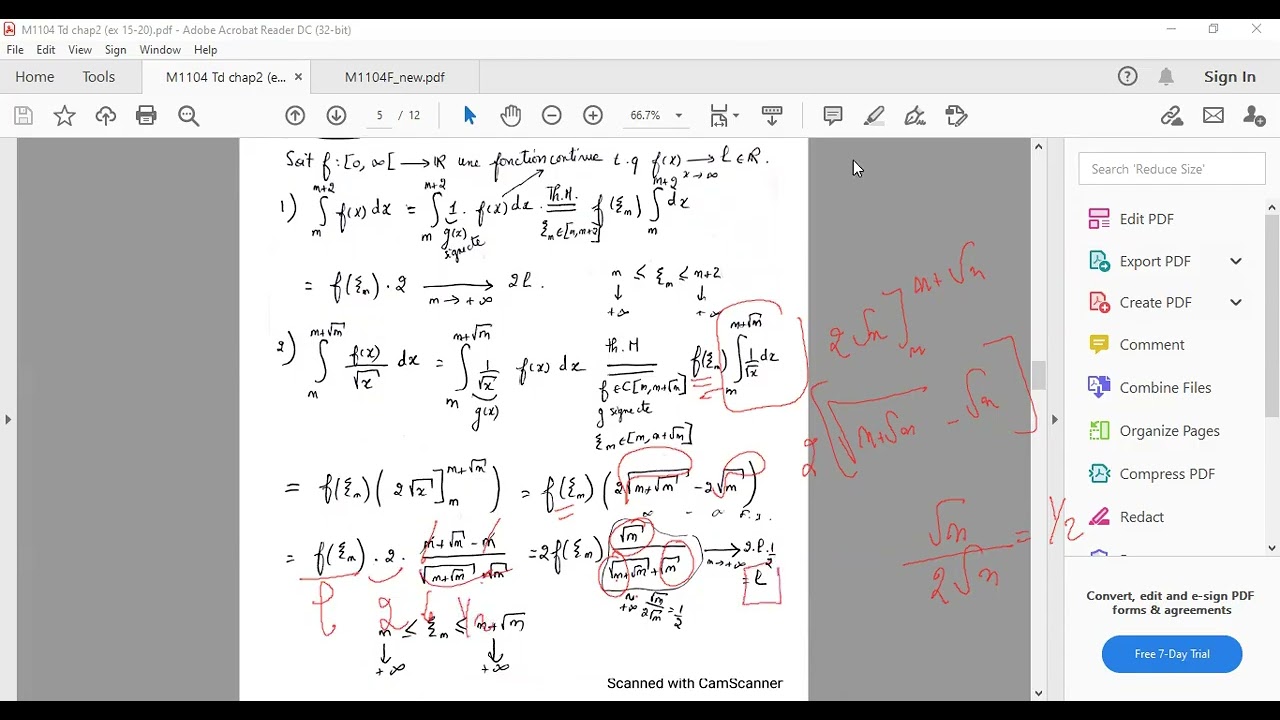 M1104 Td chap2 (ex 15-20).pdf - Adobe Acrobat Reader DC (32-bit)
File Edit View Sign Window Help
Home Tools M1104 Td chap2 (e... × M1104F_new.pdf Sign In
5 / 12 66.7%
Soit f : [0, ∞[ → ℝ une fonction continue t.q f(x) → l ∈ ℝ.
x → ∞
1) ∫_m^{m+2} f(x) dx = ∫_m^{m+2} 1 · f(x) dx = f(ξ_m) ∫_m^{m+2} dx
Th.M.
g(x)
signecte
ξ_m ∈ [m, m+2]
= f(ξ_m) · 2 → 2l.
m → +∞
m ≤ ξ_m ≤ m+2
↓ ↓
+∞ +∞
2) ∫_m^{m+√m} f(x)/√x dx = ∫_m^{m+√m} 1/√x f(x) dx = f(ξ_m) ∫_m^{m+√m} 1/√x dx
Th.M
g(x)
f ∈ C[m, m+√m]
g signecte
ξ_m ∈ [m, m+√m]
= f(ξ_m) ( 2√x ]_m^{m+√m} ) = f(ξ_m) ( 2√(m+√m) - 2√m )
∞ - ∞ F.I.
= f(ξ_m) · 2 · (m+√m - m)/(√(m+√m) + √m) = 2f(ξ_m) (√m/(√(m+√m) + √m)) → 2·l·1/2
m → +∞
= l
~ +∞ √m/2√m = 1/2
l 2 1/2
m ≤ ξ_m ≤ m+√m
↓ ↓
+∞ +∞
2√n ]_n^{n+√n}
2[√(n+√n) - √n]
√n/2√n = 1/2
Scanned with CamScanner
Search 'Reduce Size'
Edit PDF
Export PDF
Create PDF
Comment
Combine Files
Organize Pages
Compress PDF
Redact
Convert, edit and e-sign PDF
forms & agreements
Free 7-Day Trial